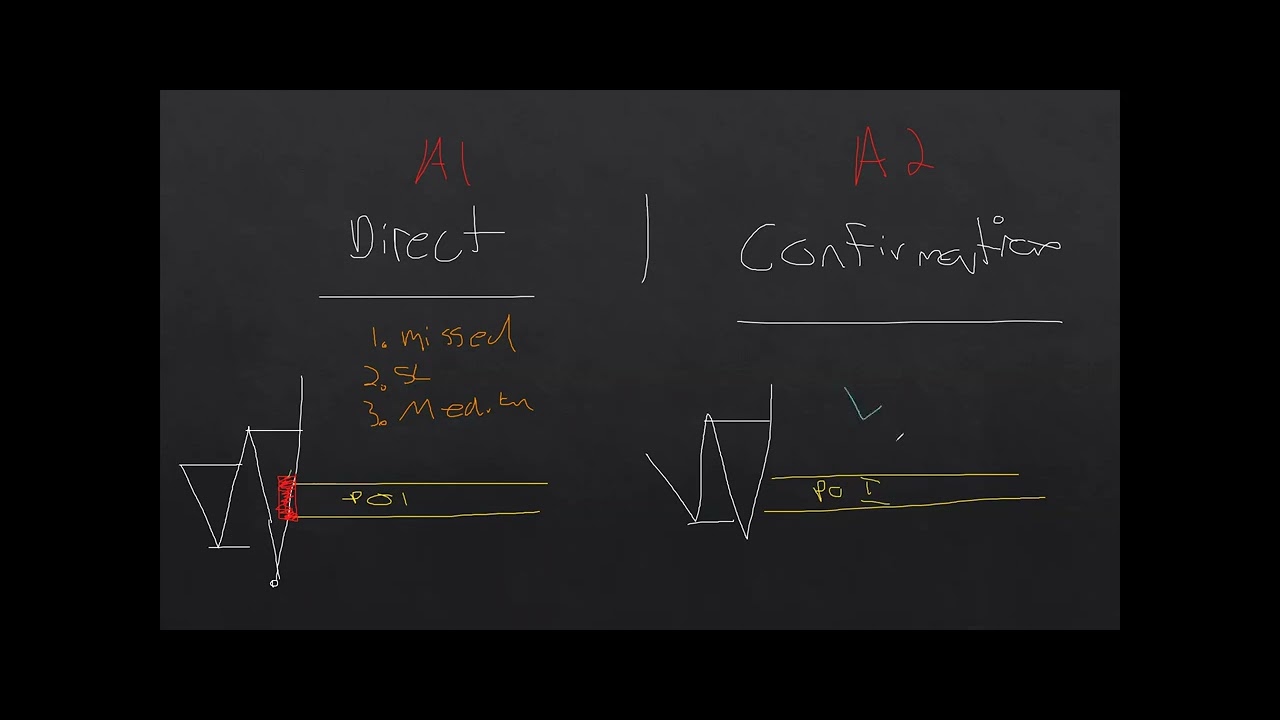 A1
Direct
1. missed
2. SL
3. Med.
POI
A2
Confirmation
POI